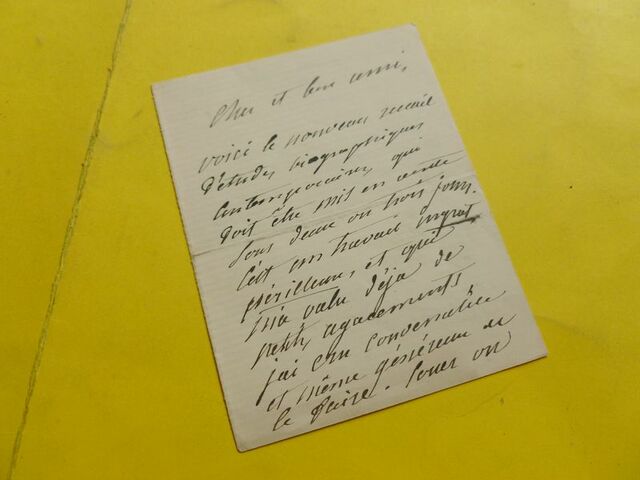 Cher et bon ami,
voici le nouveau recueil
d'études biographiques
contemporaines, qui
doit être mis en vente
sous deux ou trois jours.
C'est un travail ingrat
périlleux, et qui
m'a valu déjà de
petits agacements
j'ai cru
et même généreux de
le faire. Louer ou